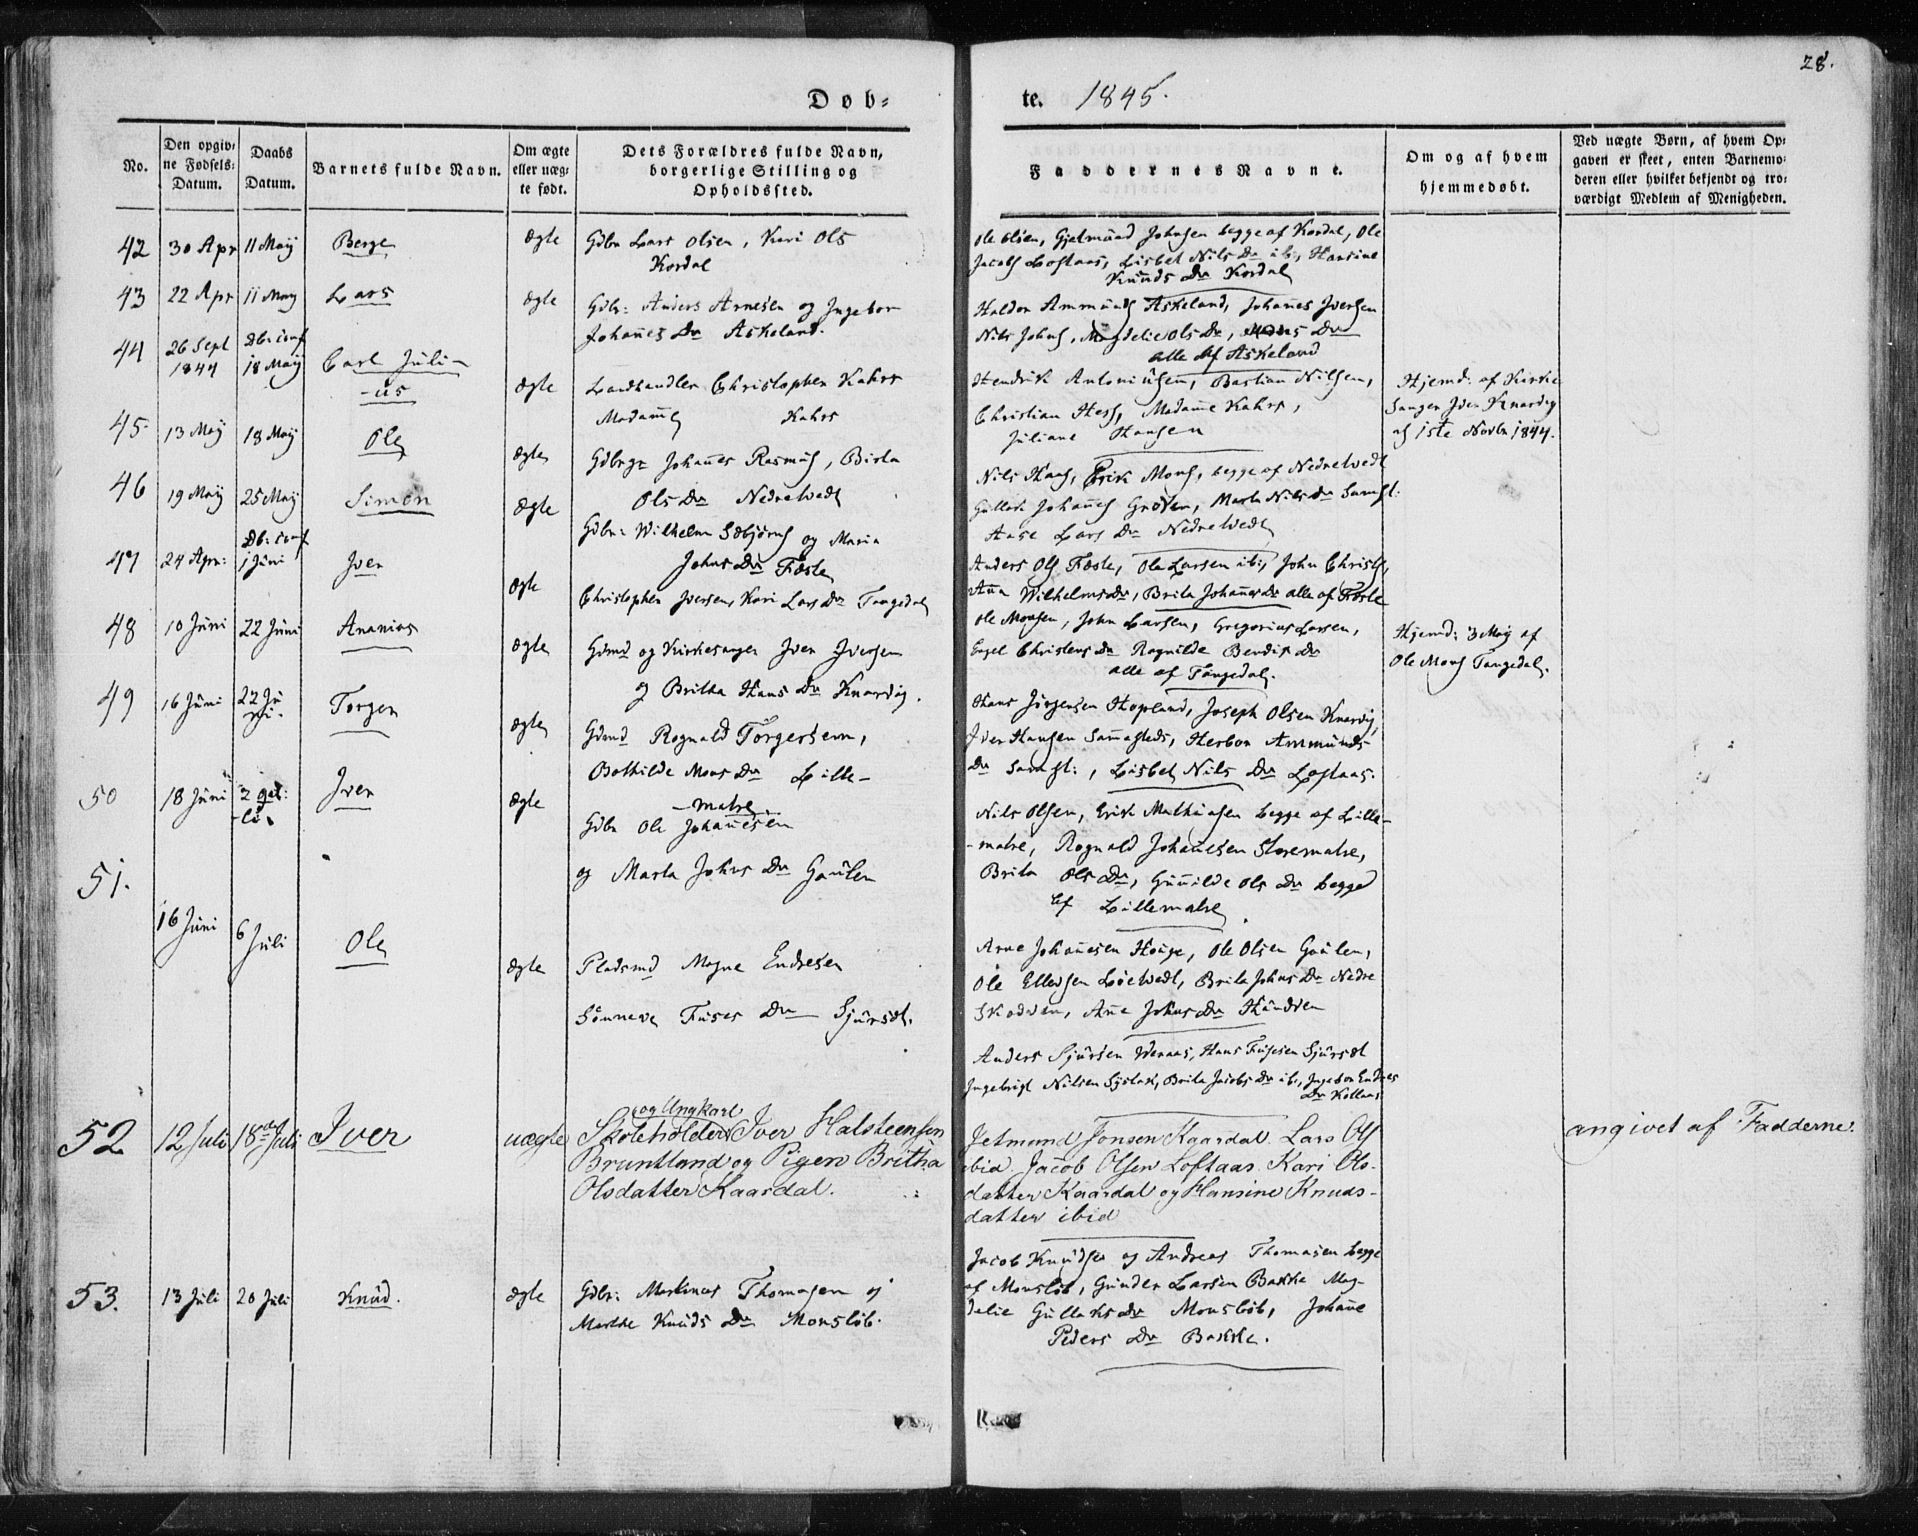 28.
Døb-
te. 1845.
No.
Den opgiv-
ne Fødsels-
Datum.
Daabs
Datum.
Barnets fulde Navn.
Om ægte
eller uæg-
te født.
Dets Forældres fulde Navn,
borgerlige Stilling og
Opholdssted.
Faddernes Navne.
Om og af hvem
hjemmedøbt.
Ved uægte Børn, af hvem Op-
gaven er skeet, enten Barnemo-
deren eller hvilket bekjendt og tro-
værdigt Medlem af Menigheden.
42 30 Apr 11 Maij Berge ægte Gdbr Lars Olsen, Kari Ols
Kordal
Ole Olsen, Gjetmund Johnsen begge af Kordal, Ole
Jacobs Loftaas, Lisbet Nils Dr ib:, Hansine
Knuds Dr Kordal
43 22 Apr 11 May Lars ægte Gdbr: Anders Arnesen og Ingebor
Johanes Dr Askeland.
Haldor Ammunds Askeland, Johanes Iversen
Nils Johns, Magdelie Ols Dr, Mons Dr
alle af Askeland
44 26 Sept 1844 Db: conf 18 Maij Carl Juli-
-us
ægte Landhandler Christopher Kahrs
Madame Kahrs
Hendrik Antoniusen, Bastian Nilsen,
Christian Hess, Madame Kahrs,
Juliane Hansen
Hjemd: af Kirke
Sanger Iver Knarvig
af 1ste Novbr 1844.
45. 13 Maij 18 Maij Ole ægte Gdbrgr Johanes Rasmus, Birta
Ols Dr Nedretvedt
Nils Haas, Erik Mons, begge af Nedretvedt
Gullak Johanes Groven, Marta Nils Dr Samst.
Aase Lars Dr Nedretvedt
46 19 Maij 25 Maij Simon ægte Gdbr: Wilhelm Sæbjørns og Maria
Johns Dr Fæste
Anders Ols Fæste, Ole Larsen ib:, John Christs,
Ana Wilhelms Dr, Brita Johanes Dr alle af Fæste
47 24 Apr: Db: conf 1 Juni Iver ægte Christopher Iversen, Kari Lars Dr Tangedal
Ole Monsen, John Larsen, Gregorius Larsen,
Engel Christens Dr Ragnilde Bendix Dr
alle af Tangedal.
Hjemd: 3 Maij af
Ole Mons Tangedal.
48 10 Juni 22 Juni Ananias ægte Gdmd og Kirkesanger Iver Iversen
og Britha Hans Dr Knarvig.
Hans Jørgensen Hopland, Joseph Olsen Knarvig,
Iver Hansen Samesteds, Herbor Ammunds
Dr Samst:, Lisbet Nils Dr Loftaas.
49 16 Juni 22 Ju
ni. Torger ægte Gdmd Rognald Torgersen,
Bothilde Mons Dr Lille-
-matre
Nils Olsen, Erik Mathiasen begge af Lille-
-matre, Rognald Johanesen Storematre,
Brita Ols Dr, Gunilde Ols Dr begge
af Lillematre
50 18 Juni Iver ægte Gdbr Ole Johanesen
og Marta Johns Dr Gaulen
Arne Johanesen Houge, Ole Olsen Gaulen,
Ole Ellevsen Løetvedt, Brita Johns Dr Nedre
Skodven, Ane Johns Dr Hundven
51. 16 Juni 6 Juli Ole ægte Pladsmd Magne Endresen
Sønneve Fuses Dr Sjursæt.
Anders Sjursen Wenaas, Hans Fusesen Sjursæt
Ingebrigt Nilsen Systad, Brita Jacobs Dr ib:, Ingebor Endres
Dr Kollaas
52 12 Juli 18de Juli Iver uægte og Ungkarl
Skoleholder Iver Halsteensen
Bruntland og Pigen Britha
Olsdatter Kaardal.
Jetmund Jonsen Kaardal. Lars Ols
ibid. Jacob Olsen Loftaas. Kari Ols-
datter Kaardal og Hansine Knuds-
datter ibid
angivet af Fadderne.
53. 13 Juli 20 Juli Knud. ægte Gdbr: Martinus Thomasen og
Marthe Knuds Dr Monsløb.
Jacob Knudsen og Andreas Thomasen begge
af Monsløb, Gunder Larsen Bakke Mag-
delie Gullaks Dr Monsløb, Johane
Peders Dr Bakke.